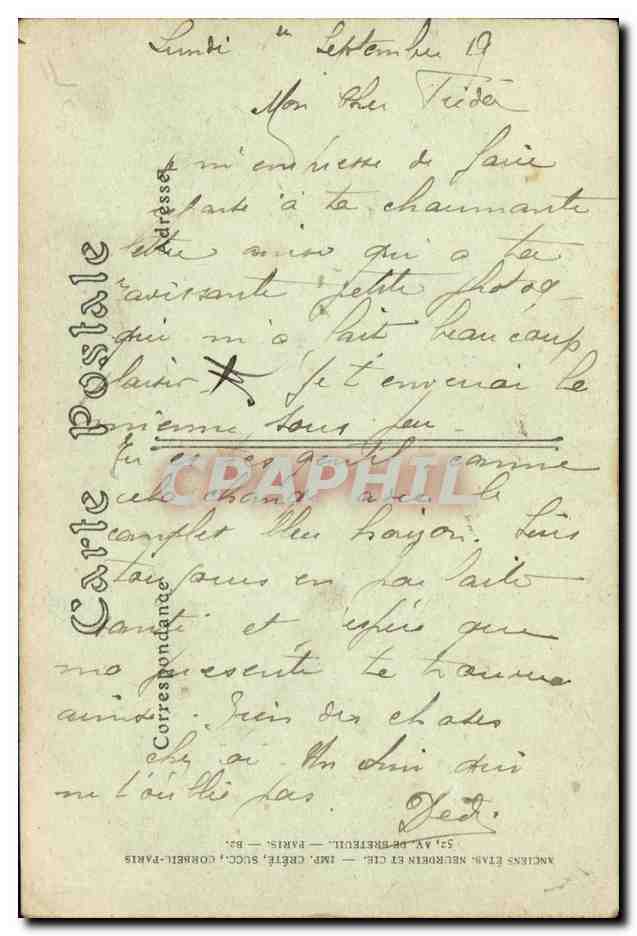 Lundi Septembre 19
Mon cher
Je m'empresse de faire
à ta charmante
lettre ainsi qui a ta
ravissante petite photog
qui m'a fait beaucoup
plaisir. Je t'enverrai le
mienne sous peu
Tu es très gentil comme
cela change avec le
complet bleu
toujours en parfaite
santé et espère que
ma presente te trouve
ainsi. Bien des choses
qui
ne t'oublie pas.
Dédé
Carte Postale
Correspondance
Adresse
CPAPHIL
ANCIENS ÉTAB. NEURDEIN ET CIE. — IMP. CRÉTÉ, SUCC., CORBEIL-PARIS
52, AV. DE BRETEUIL. — PARIS. — B2.